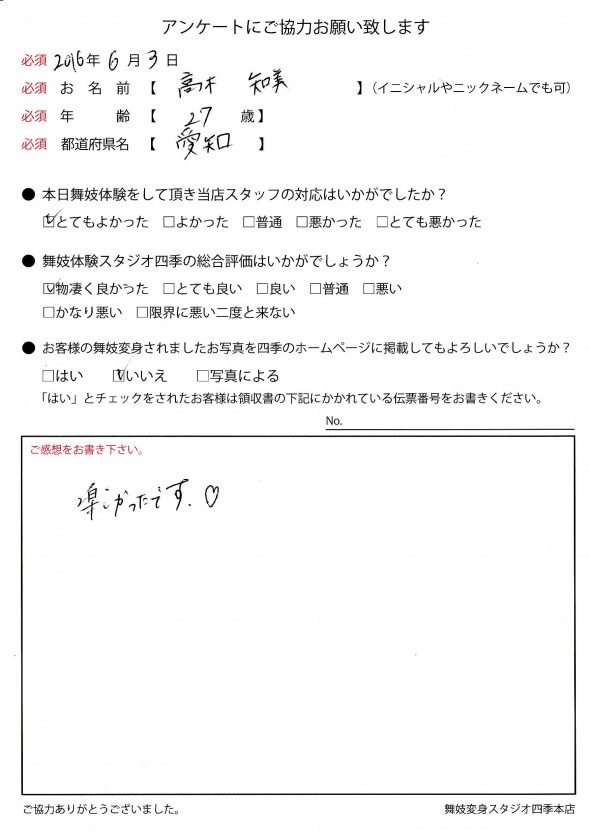 アンケートにご協力お願い致します
必須 2016年 6月 3日
必須 お名前【 高木 知美 】（イニシャルやニックネームでも可）
必須 年齢【 27 歳】
必須 都道府県名【 愛知 】
● 本日舞妓体験をして頂き当店スタッフの対応はいかがでしたか？
☑とてもよかった □よかった □普通 □悪かった □とても悪かった
● 舞妓体験スタジオ四季の総合評価はいかがでしょうか？
☑物凄く良かった □とても良い □良い □普通 □悪い
□かなり悪い □限界に悪い二度と来ない
● お客様の舞妓変身されましたお写真を四季のホームページに掲載してもよろしいでしょうか？
□はい ☑いいえ □写真による
「はい」とチェックをされたお客様は領収書の下記にかかれている伝票番号をお書きください。
No.
ご感想をお書き下さい。
楽しかったです.♡
ご協力ありがとうございました。
舞妓変身スタジオ四季本店